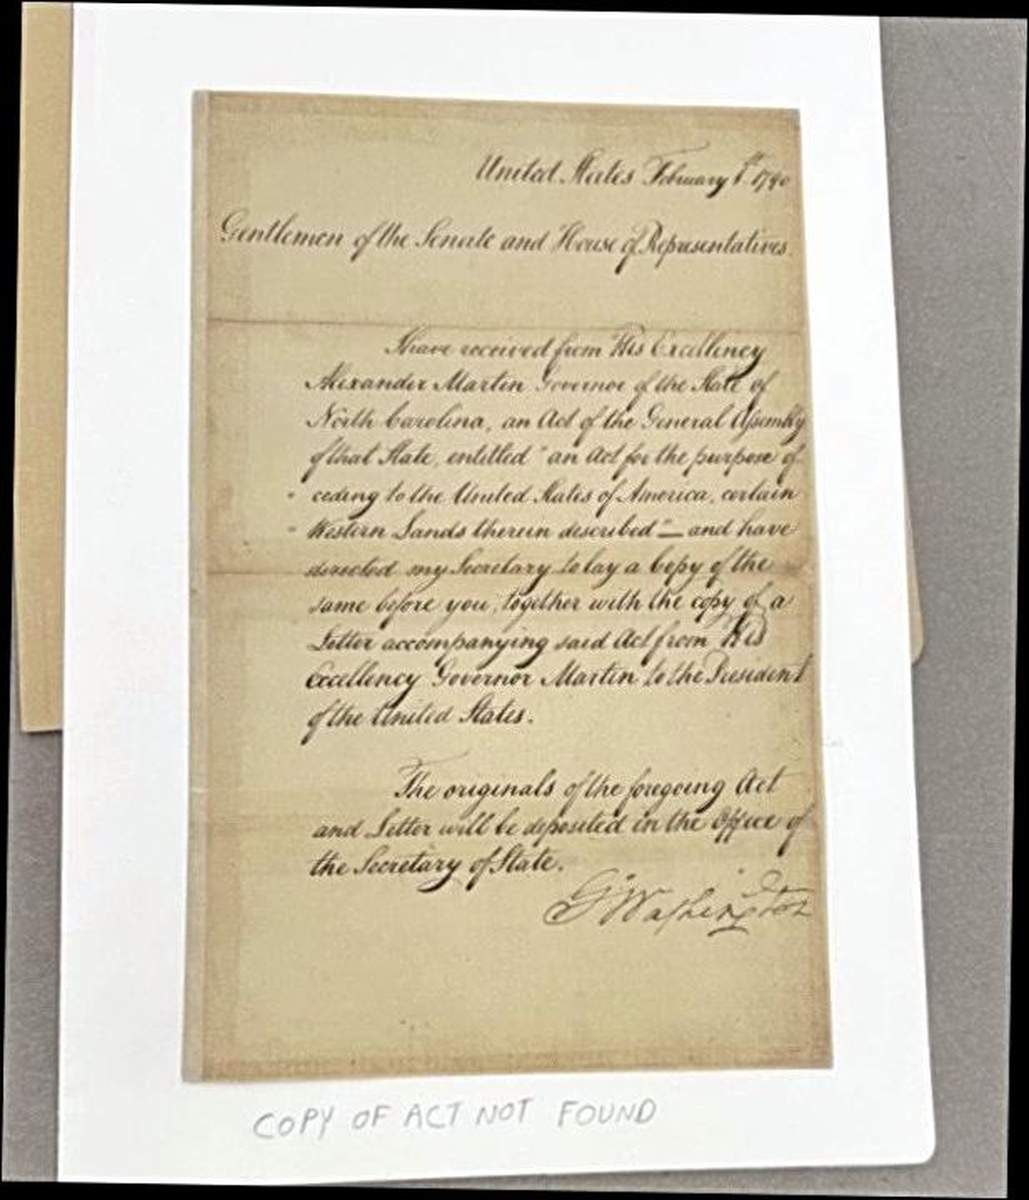 United States February 1st 1790
Gentlemen of the Senate and House of Representatives.
I have received from His Excellency
Alexander Martin Governor of the State of
North Carolina, an Act of the General Assembly
of that State, entitled "an Act for the purpose of
" ceding to the United States of America, certain
" Western Lands therein described" — and have
directed my Secretary to lay a Copy of the
same before you, together with the copy of a
Letter accompanying said Act from His
Excellency Governor Martin to the President
of the United States.
The originals of the foregoing Act
and Letter will be deposited in the Office of
the Secretary of State.
G:Washington
COPY OF ACT NOT FOUND